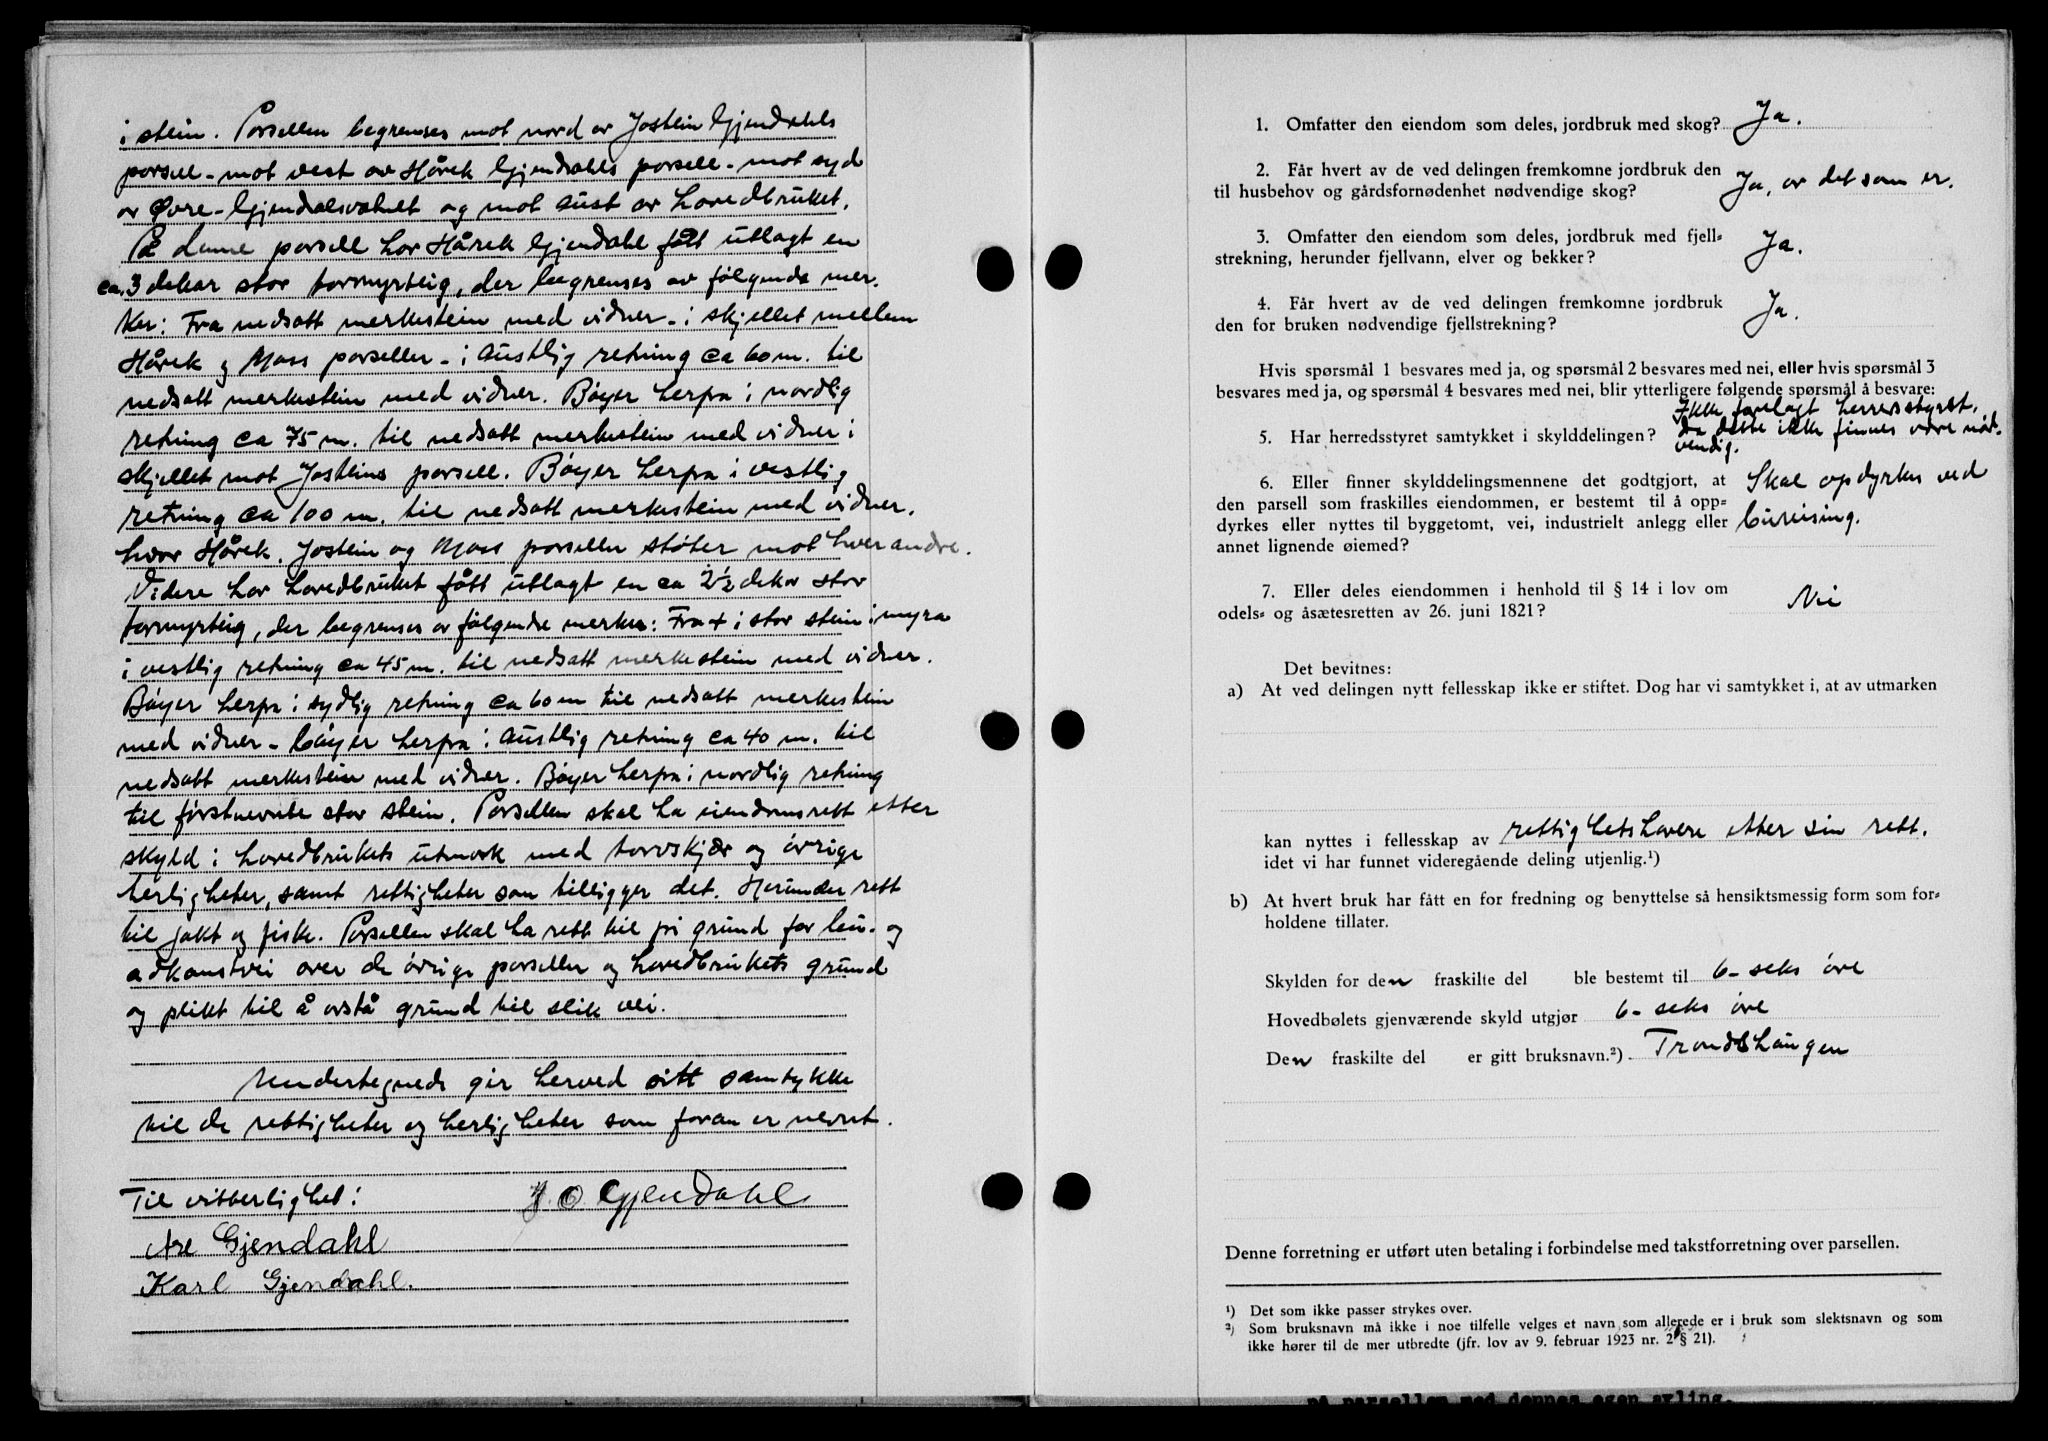 i stein. Parsellen begrenses mot nord av Jostein Gjendahls
parsell - mot vest av Hårek Gjendahls parsell - mot syd
av Øvre-Gjendalsvatnet og mot aust av hovedbruket.
På denne parsell har Hårek Gjendahl fått utlagt en
ca. 3 dekar stor torvmyrteig, der begrenses av følgende mer-
ker: Fra nedsatt merkestein med vidner - i skjellet mellem
Hårek og Mass parseller - i austlig retning ca 60 m. til
nedsatt merkestein med vidner. Bøyer herfra i nordlig
retning ca 75 m. til nedsatt merkestein med vidner i
skjellet mot Josteins parsell. Bøyer herfra i vestlig
retning ca 100 m. til nedsatt merkestein med vidner,
hvor Hårek, Jostein og Mass parseller støter mot hverandre.
Videre har hovedbruket fått utlagt en ca 2½ dekar stor
torvmyrteig, der begrenses av følgende merker: Fra + i stor stein i myra
i vestlig retning ca 45 m. til nedsatt merkestein med vidner.
Bøyer herfra i sydlig retning ca 60 m til nedsatt merkestein
med vidner - bøyer herfra i austlig retning ca 40 m. til
nedsatt merkestein med vidner. Bøyer herfra i nordlig retning
til førstnevnte stor stein. Parsellen skal ha eiendomsrett etter
skyld i hovedbrukets utmark med torvskjær og øvrige
herligheter, samt rettigheter som tilligger det. Herunder rett
til jakt og fiske. Parsellen skal ha rett til fri grunn for lei- og
adkomstvei over de øvrige parseller og hovedbrukets grunn
og plikt til å avstå grunn til slik vei.
Undertegnede gir herved sitt samtykke
til de rettigheter og herligheter som foran er nevnt.
Til vitterlighet: J. O. Gjendahl
Are Gjendahl
Karl Gjendahl.
1. Omfatter den eiendom som deles, jordbruk med skog? Ja.
2. Får hvert av de ved delingen fremkomne jordbruk den
til husbehov og gårdsfornødenhet nødvendige skog? Ja, av det som er.
3. Omfatter den eiendom som deles, jordbruk med fjell-
strekning, herunder fjellvann, elver og bekker? Ja.
4. Får hvert av de ved delingen fremkomne jordbruk
den for bruken nødvendige fjellstrekning? Ja.
Hvis spørsmål 1 besvares med ja, og spørsmål 2 besvares med nei, eller hvis spørsmål 3
besvares med ja, og spørsmål 4 besvares med nei, blir ytterligere følgende spørsmål å besvare:
Ikke forelagt herredsstyret,
5. Har herredsstyret samtykket i skylddelingen? da dette ikke finnes være nød-
vendig.
6. Eller finner skylddelingsmennene det godtgjort, at Skal opdyrkes ved
den parsell som fraskilles eiendommen, er bestemt til å opp-
dyrkes eller nyttes til byggetomt, vei, industrielt anlegg eller bureising.
annet lignende øiemed?
7. Eller deles eiendommen i henhold til § 14 i lov om
odels- og åsætesretten av 26. juni 1821? Nei
Det bevitnes:
a) At ved delingen nytt fellesskap ikke er stiftet. Dog har vi samtykket i, at av utmarken
kan nyttes i fellesskap av rettighetshavere etter sin rett.
idet vi har funnet videregående deling utjenlig.¹)
b) At hvert bruk har fått en for fredning og benyttelse så hensiktsmessig form som for-
holdene tillater.
Skylden for den fraskilte del ble bestemt til 6 - seks øre
Hovedbølets gjenværende skyld utgjør 6 - seks øre
Den fraskilte del er gitt bruksnavn.²) Trondshaugen
Denne forretning er utført uten betaling i forbindelse med takstforretning over parsellen.
¹) Det som ikke passer strykes over.
²) Som bruksnavn må ikke i noe tilfelle velges et navn som allerede er i bruk som slektsnavn og som
ikke hører til de mer utbredte (jfr. lov av 9. februar 1923 nr. 2 § 21).
på parsellen med dennes egen avling.